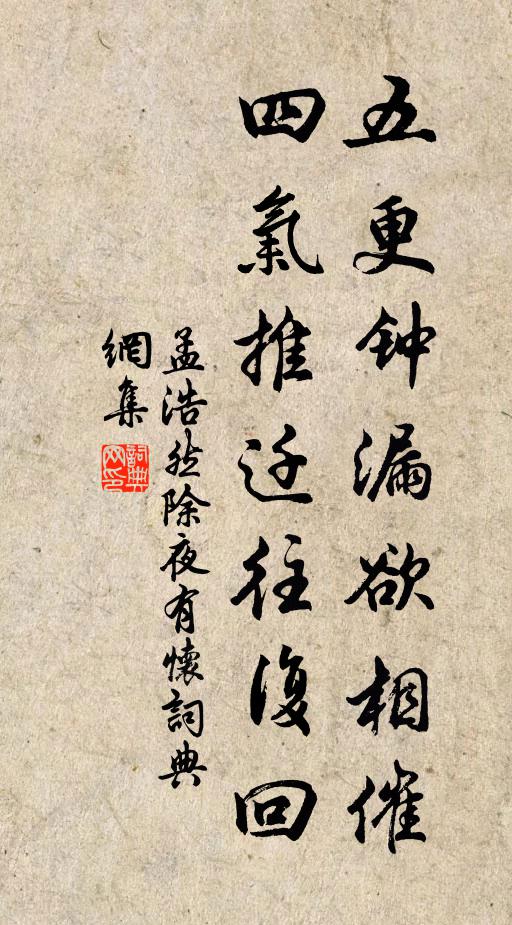 五更钟漏欲相催
四氣推迁往復回
孟浩然除夜有懷詞典
網集
詞典
网印